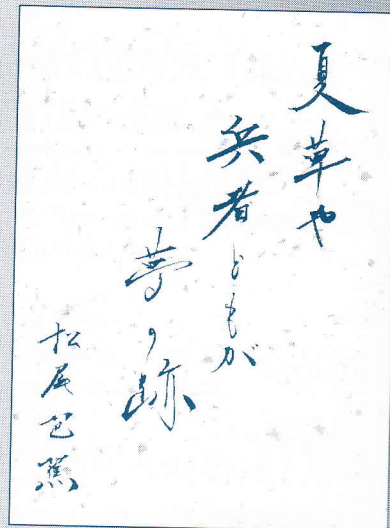 夏草や
兵者どもが
夢の跡
松尾芭蕉